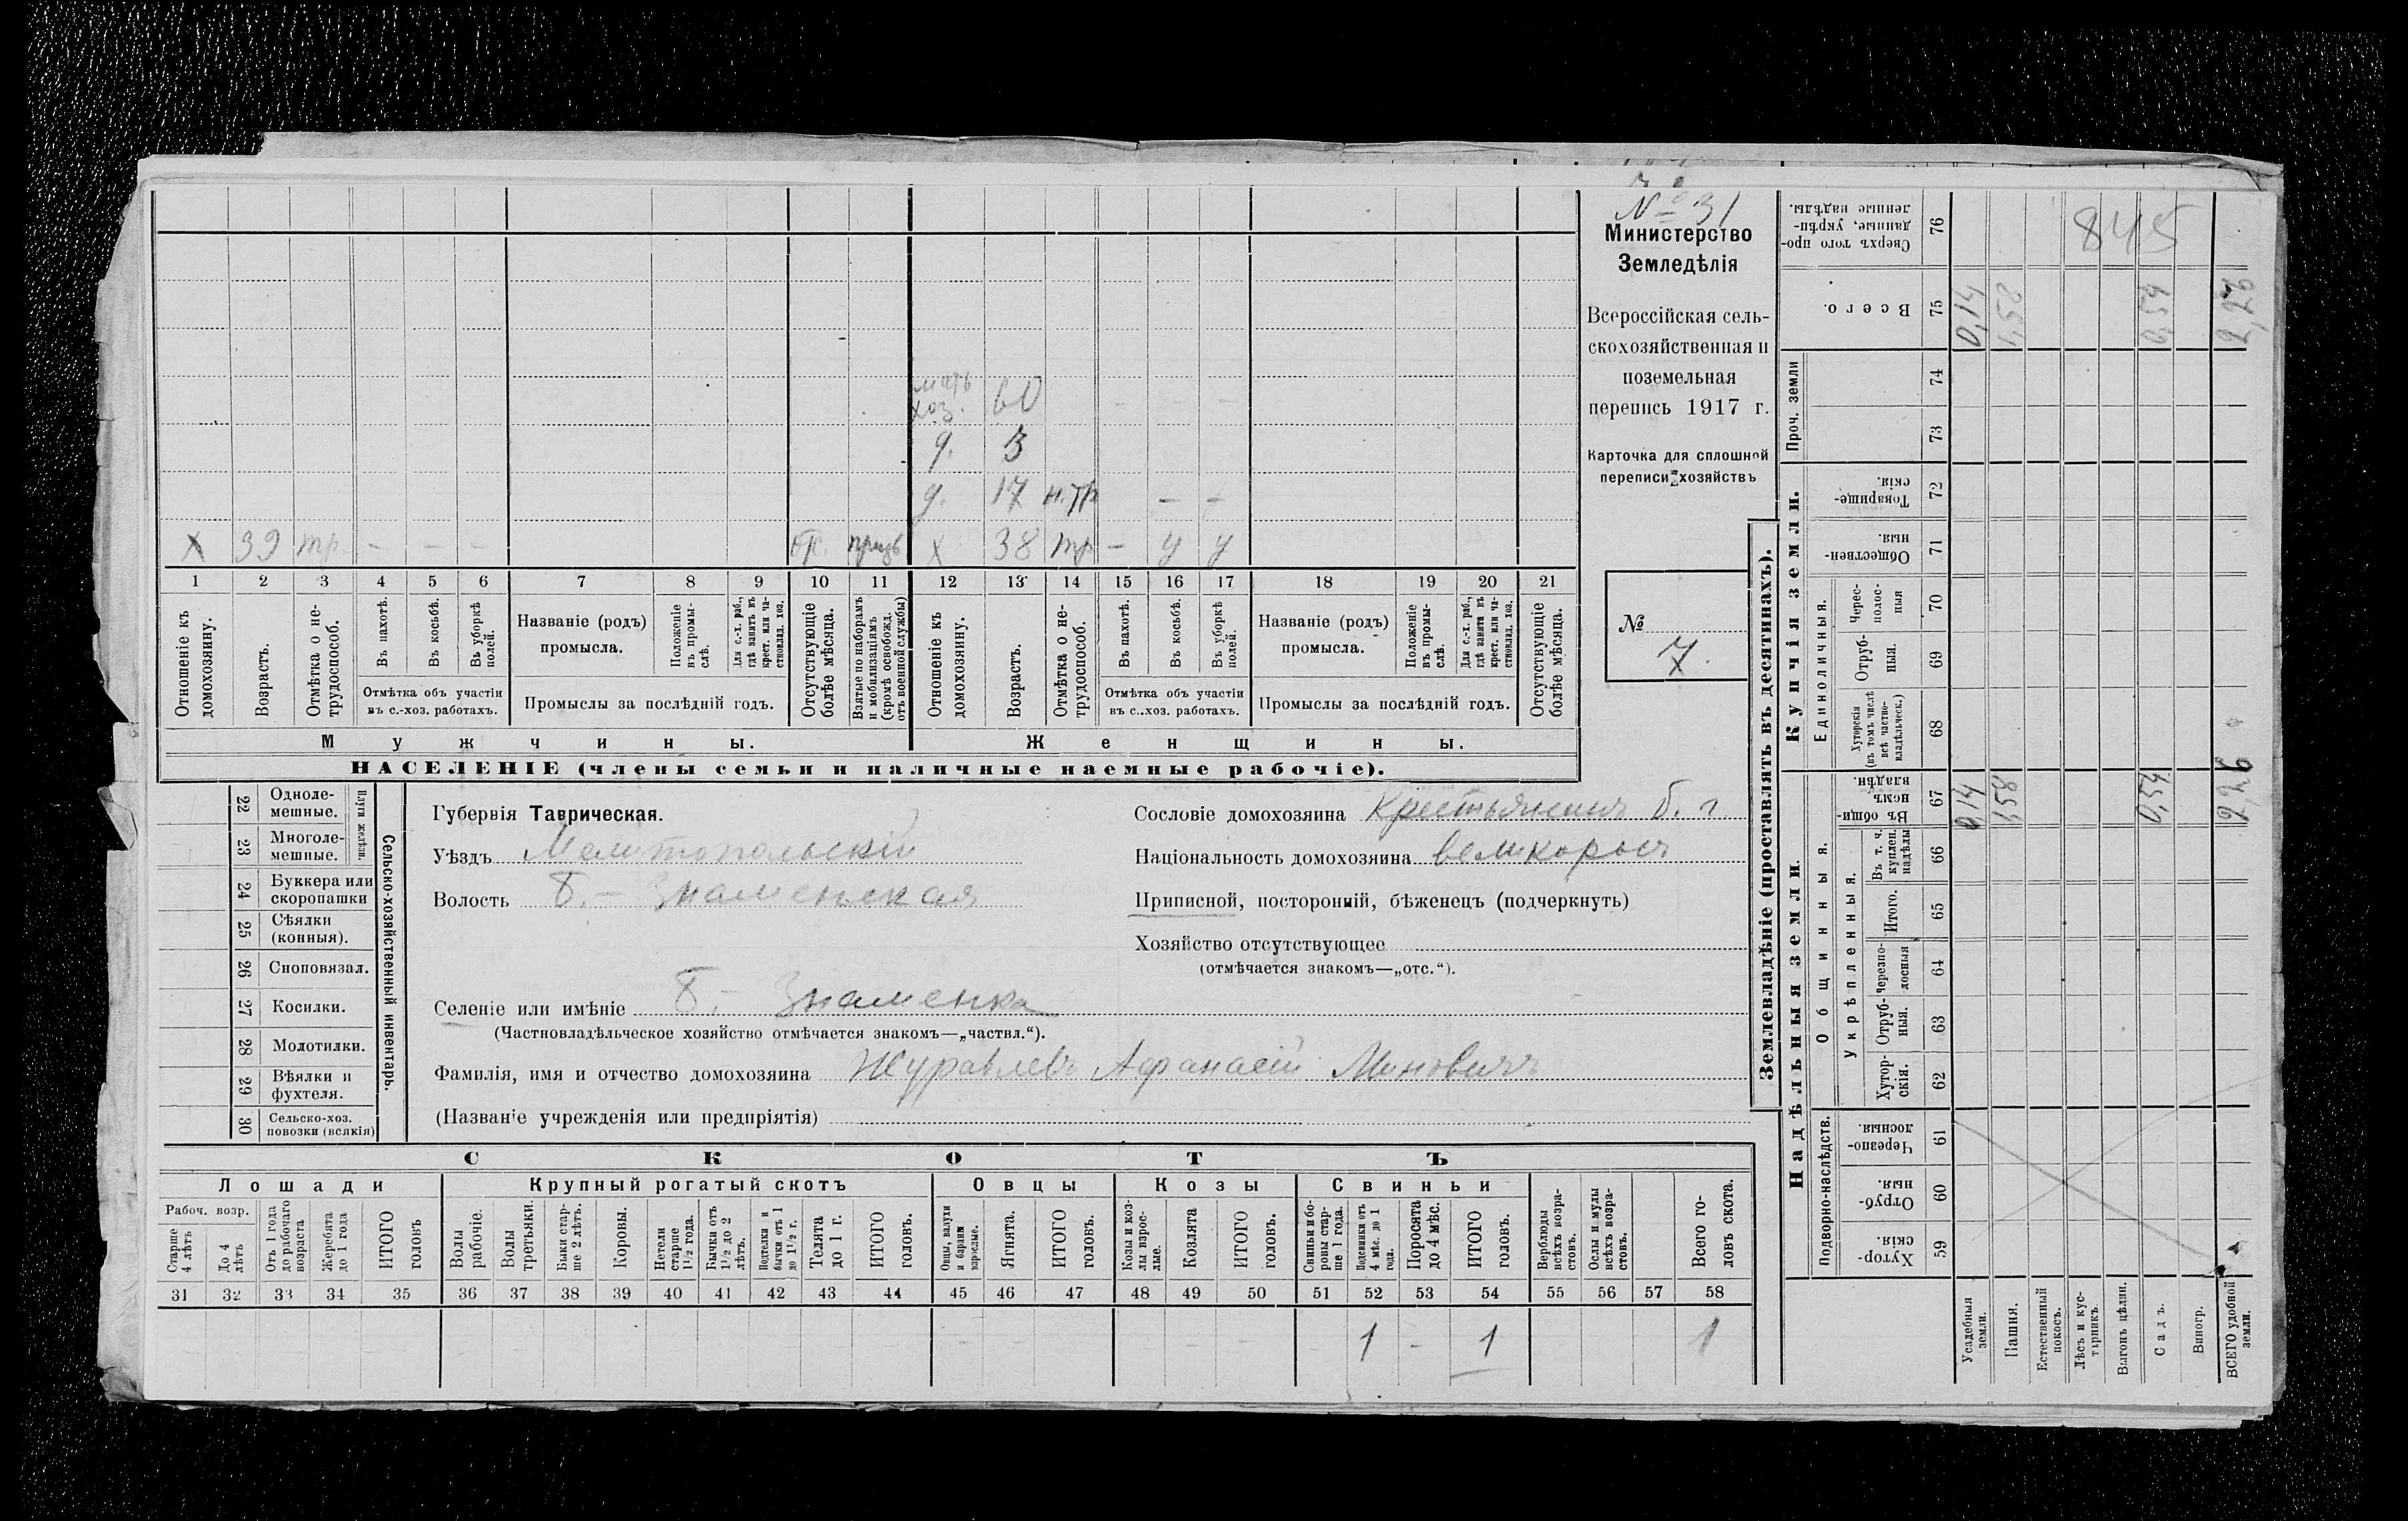 № 31
Министерство
Земледѣлія
Всероссійская сель-
скохозяйственная и
поземельная
перепись 1917 г.
Карточка для сплошной
переписи хозяйствъ
№
7.
мать
хоз. 60
д. 3
д. 17 н.тр - -
х 39 тр. - - - от. призв х 38 тр - у у
1 2 3 4 5 6 7 8 9 10 11 12 13 14 15 16 17 18 19 20 21
Отношеніе къ домохозяину.
Возрастъ.
Отмѣтка о не-трудоспособ.
Въ пахотѣ.
Въ косьбѣ.
Въ уборкѣ полей.
Отмѣтка объ участіи
въ с.-хоз. работахъ.
Названіе (родъ)
промысла.
Положеніе въ промы-слѣ.
Для с.-х. раб., гдѣ занятъ въ крест. или ча-стновлад. хоз.
Промыслы за послѣдній годъ.
Отсутствующіе болѣе мѣсяца.
Взятые по наборамъ и мобилизаціямъ (кромѣ освобожд. отъ военной службы)
Отношеніе къ домохозяину.
Возрастъ.
Отмѣтка о не-трудоспособ.
Въ пахотѣ.
Въ косьбѣ.
Въ уборкѣ полей.
Отмѣтка объ участіи
въ с..хоз. работахъ.
Названіе (родъ)
промысла.
Положеніе въ промы-слѣ.
Для с.-х. раб., гдѣ занята въ крест. или ча-стновлад. хоз.
Промыслы за послѣдній годъ.
Отсутствующіе болѣе мѣсяца.
Мужчины. Женщины.
НАСЕЛЕНІЕ (члены семьи и наличные наемные рабочіе).
Сельско-хозяйственный инвентарь.
Плуги желѣзн.
22 Одноле-
мешные.
23 Многоле-
мешные.
24 Буккера или
скоропашки
25 Сѣялки
(конныя).
26 Сноповязал.
27 Косилки.
28 Молотилки.
29 Вѣялки и
фухтеля.
30 Сельско-хоз.
повозки (всякія)
Губернія Таврическая.
Уѣздъ Мелитопольскій
Волость Б. - Знаменская
Сословіе домохозяина Крестьянинъ б. г
Національность домохозяина великороссъ
Приписной, посторонній, бѣженецъ (подчеркнуть)
Хозяйство отсутствующее
(отмѣчается знакомъ—„отс.“).
Селеніе или имѣніе Б. - Знаменка
(Частновладѣльческое хозяйство отмѣчается знакомъ—„частвл.“).
Фамилія, имя и отчество домохозяина Журавлевъ Афанасій Миновичъ
(Названіе учрежденія или предпріятія)
СКОТЪ
Лошади Крупный рогатый скотъ Овцы Козы Свиньи
Рабоч. возр.
Старше 4 лѣтъ
До 4 лѣтъ
Отъ 1 года до рабочаго возраста
Жеребята до 1 года
ИТОГО головъ
Волы рабочіе.
Волы третьяки.
Быки стар-ше 2 лѣтъ.
Коровы.
Нетели старше 1½ года.
Бычки отъ 1½ до 2 лѣтъ.
Подтелки и бычки отъ 1 до 1½ г.
Телята до 1 г.
ИТОГО головъ.
Овцы, валухи и бараны взрослые.
Ягнята.
ИТОГО головъ.
Козы и коз-лы взрос-лые.
Козлята
ИТОГО головъ.
Свиньи и бо-ровы стар-ше 1 года.
Подсвинки отъ 4 мѣс. до 1 года.
Поросята до 4 мѣс.
ИТОГО головъ.
Верблюды всѣхъ возра-стовъ.
Ослы и мулы всѣхъ возра-стовъ.
Всего го-ловъ скота.
31 32 33 34 35 36 37 38 39 40 41 42 43 44 45 46 47 48 49 50 51 52 53 54 55 56 57 58
1 - 1 1
Землевладѣніе (проставлять въ десятинахъ).
Надѣльныя земли. Купчія земли.
Подворно-наслѣдств.
Общинныя.
Укрѣпленныя.
Единоличныя.
Проч. земли
Сверхъ того про-данные, укрѣп-ленные надѣлы. 76 845
Всего. 75 0,14 1,58 0,54 2,26
74
73
Товарище-скія. 72
Обществен-ныя. 71
Черес-полос-ныя 70
Отруб-ныя. 69
Хуторскія (въ томъ числѣ всѣ частно-владѣльческ.) 68
Въ общи-номъ владѣн. 67 0,14 1,58 0,54 2,26
Въ т. ч. куплен. надѣлы 66
Итого. 65
Черезпо-лосныя 64
Отруб-ныя. 63
Хутор-скія. 62
Черезпо-лосныя. 61
Отруб-ныя. 60
Хутор-скія. 59
Усадебныя земли.
Пашня.
Естественный покосъ.
Лѣсъ и кус-тарникъ.
Выгонъ цѣлин.
Садъ.
Виногр.
ВСЕГО удобной земли.